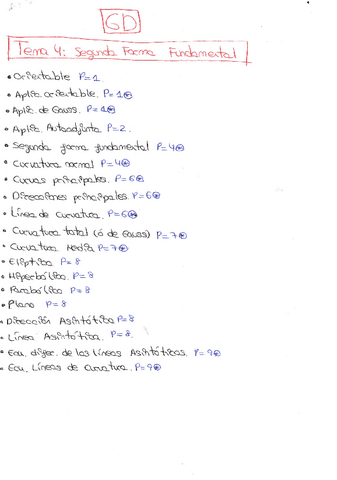 GD
Tema 4: Segunda Forma Fundamental
• Orientable P=1
• Aplic. orientable. P=1⊛
• Aplic. de Gauss. P=1⊛
• Aplic. Autoadjunta P=2.
• Segunda forma fundamental P=4⊛
• Curvatura normal P=4⊛
• Curvas principales. P=6⊛
• Direcciones principales. P=6⊛
• Línea de Curvatura. P=6⊛
• Curvatura total (ó de Gauss) P=7⊛
• Curvatura Media P=7⊛
• Elíptico P=8
• Hiperbólico. P=8
• Parabólico P=8
• Plano P=8
• Dirección Asintótica P=8
• Línea Asintótica. P=8.
• Ecu. difer. de las líneas Asintóticas. P=9⊛
• Ecu. Líneas de Curvatura. P=9⊛